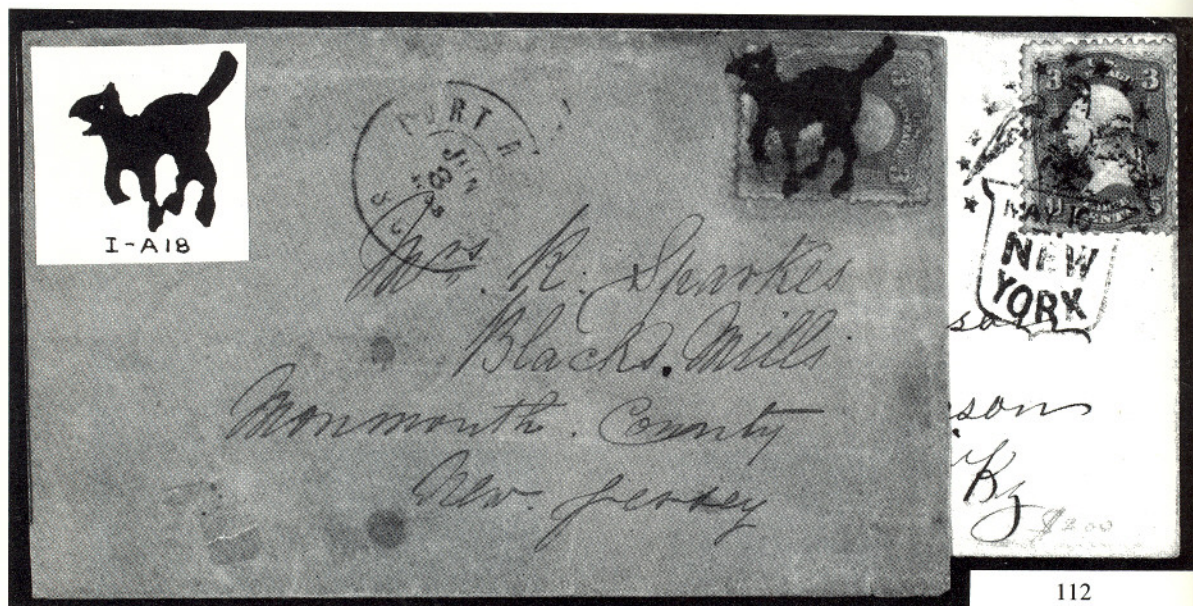 I-A18
PORT R
JUN
S.C.
Mrs. R. Sparkes
Blacks. Mills
Monmouth. County
New. Jersey
3
3
3
3
MAY 10
NEW
YORK
son
rson
Ky
$200
112